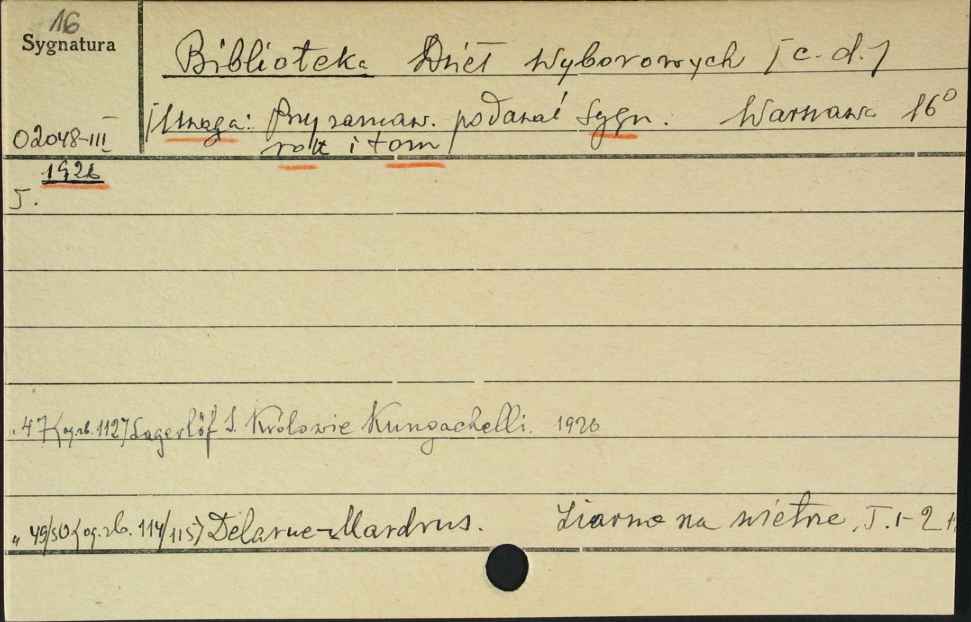 16
Sygnatura
Biblioteka Dzieł Wyborowych [c. d.]
02048-III
[Uwaga: Przy zamaw. podawać Sygn. Warszawa 16°
rok i tom]
1926
T.
„ 47 [og. zb. 112] Lagerlöf S. Królowie Kungachelli. 1926
„ 49/50 [og. zb. 114/115] Delarue-Mardrus. Ziarno na wietrze. T. 1-2